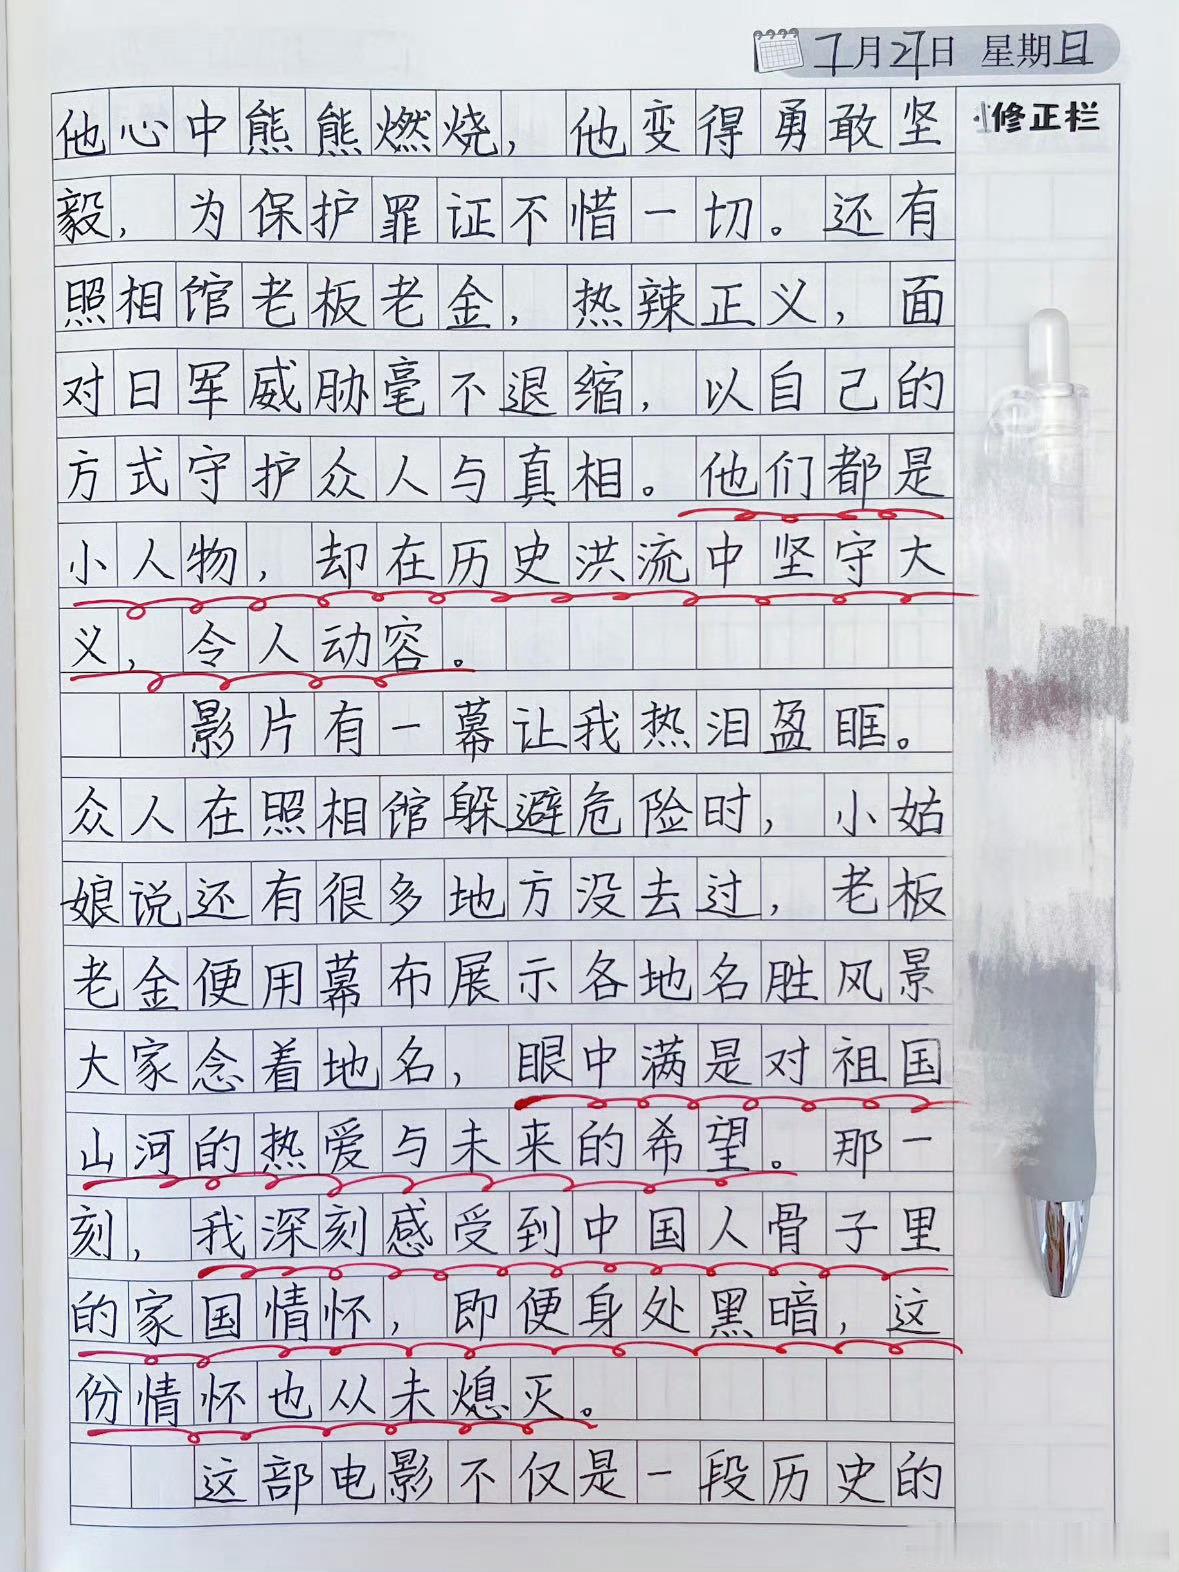 7月27日 星期日
修正栏
他心中熊熊燃烧，他变得勇敢坚
毅，为保护罪证不惜一切。还有
照相馆老板老金，热辣正义，面
对日军威胁毫不退缩，以自己的
方式守护众人与真相。他们都是
小人物，却在历史洪流中坚守大
义，令人动容。
影片有一幕让我热泪盈眶。
众人在照相馆躲避危险时，小姑
娘说还有很多地方没去过，老板
老金便用幕布展示各地名胜风景
大家念着地名，眼中满是对祖国
山河的热爱与未来的希望。那一
刻，我深刻感受到中国人骨子里
的家国情怀，即便身处黑暗，这
份情怀也从未熄灭。
这部电影不仅是一段历史的